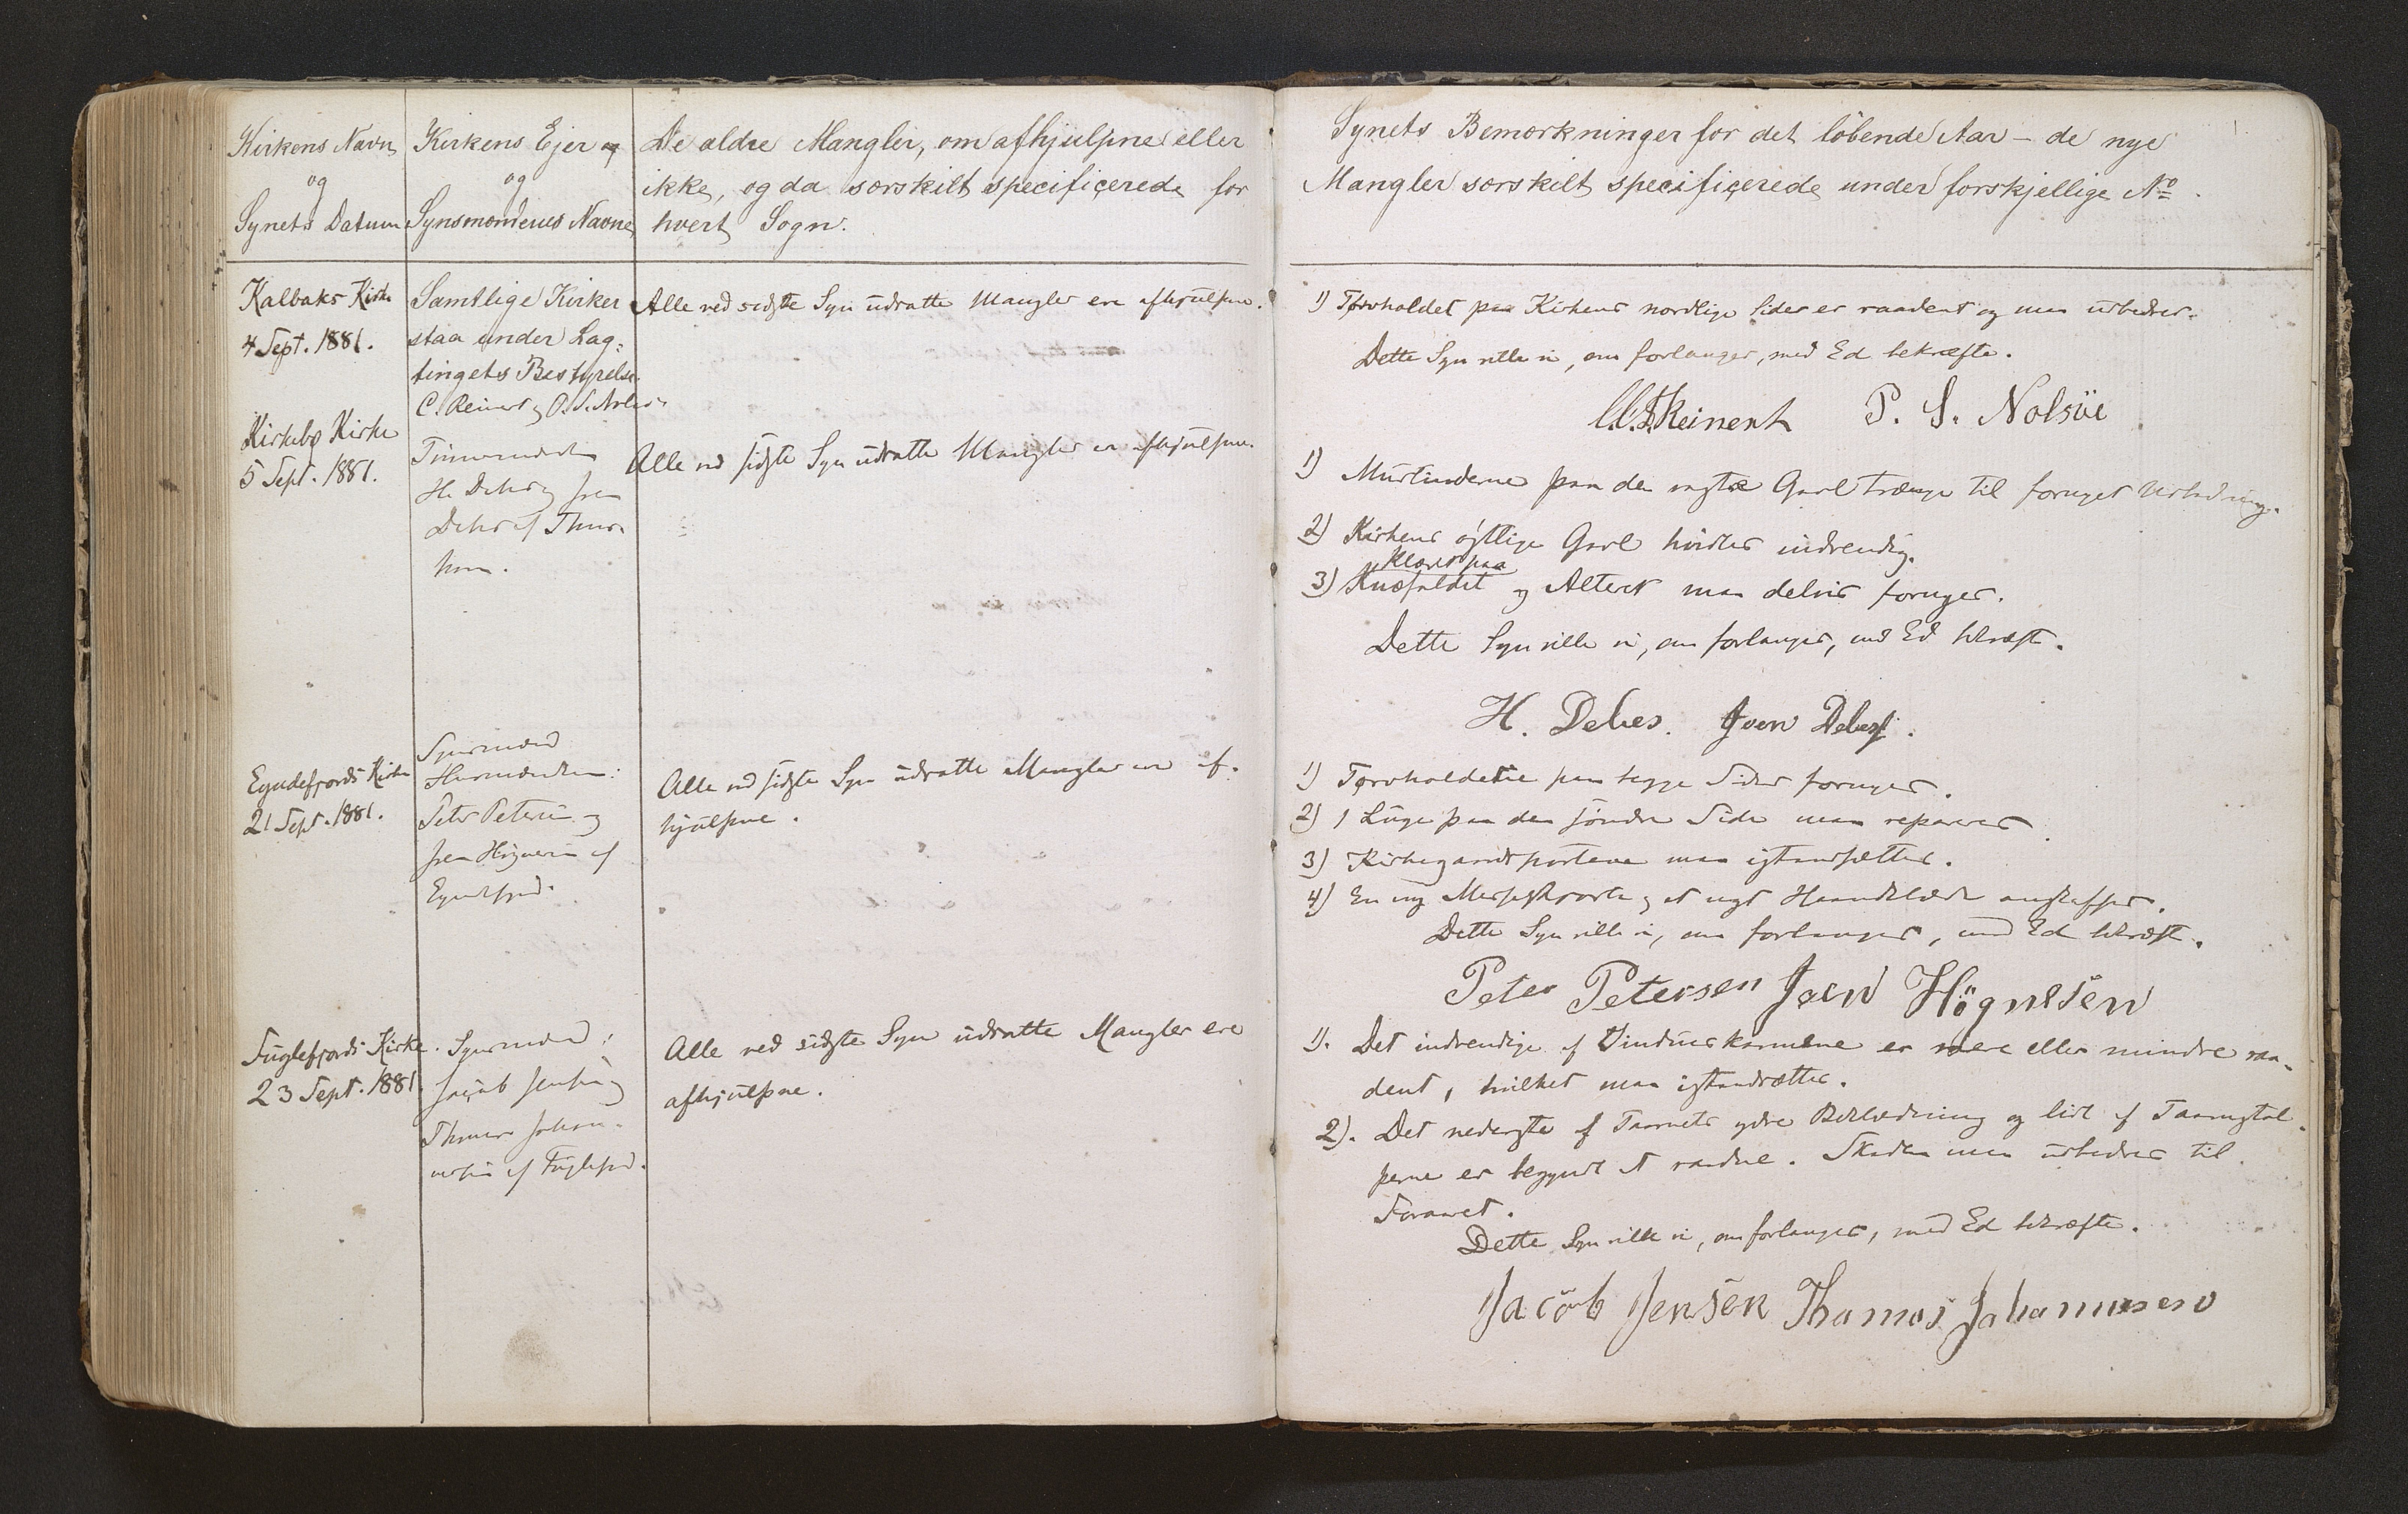 Kirkens Navn
og
Synets Datum
Kirkens Ejer og
og
Synsmændenes Navne
De ældre Mangler, om afhjulpne eller
ikke, og da særskilt specificerede for
hvert Sogn.
Kalbaks Kirke
4 Sept. 1881.
Samtlige Kirker
staa under Lag-
tingets Bestyrelse.
C. Reinert og P. S.
Alle ved sidste Syn udsatte Mangler ere afhjulpne.
Kirkebø Kirke
5 Sept. 1881.
Tømmermændene
H. Debes og Joen
Debes af Thors-
havn.
Alle ved sidste Syn udsatte Mangler ere afhjulpne.
Eyndefjords Kirke
21 Sept. 1881.
Synsmænd
Peter Petersen og
Joen Høgnesen af
Eyndefjord.
Alle ved sidste Syn udsatte Mangler ere af-
hjulpne.
Fuglefjords Kirke
23 Sept. 1881.
Synsmænd:
Jacob Jensen og
Thomas Johan-
nesen af Fuglefjord.
Alle ved sidste Syn udsatte Mangler ere
afhjulpne.
Synets Bemærkninger for det løbende Aar – de nye
Mangler særskilt specificerede under forskjellige No.
1) Tørvholdet paa Kirkens nordlige Side er raadent og maa udbedres.
Dette Syn ville vi, om forlanges, med Ed bekræfte.
Reinert P. S. Nolsöe
1) Murtinderne paa den vestre Gavl trænge til fornyet Udbedring.
2) Kirkens østlige Gavl hvidtes indvendig.
Klædet paa
3) Knæfaldet og Alteret maa delvis fornyes.
Dette Syn ville vi, om forlanges, med Ed bekræfte.
H. Debes. Joen Debes.
1) Tørvholdene paa begge Sider fornyes.
2) 1 Luge paa den søndre Side maa repareres
3) Kirkegaardsportene maa istandsættes.
4) En ny Messeskjorte og et nyt Haandklæde anskaffes.
Dette Syn ville vi, om forlanges, med Ed bekræfte.
Peter Petersen Joen Högnesen
1). Det indvendige af Vindueskarmene er mere eller mindre raa-
dent, hvilket maa istandsættes.
2). Det nederste af Taarnets ydre Beklædning og lidt af Taarnstol-
perne er begyndt at raadne. Skaden maa udbedres til
Foraaret.
Dette Syn ville vi, om forlanges, med Ed bekræfte.
Jacob Jensen Thomas Johannesen